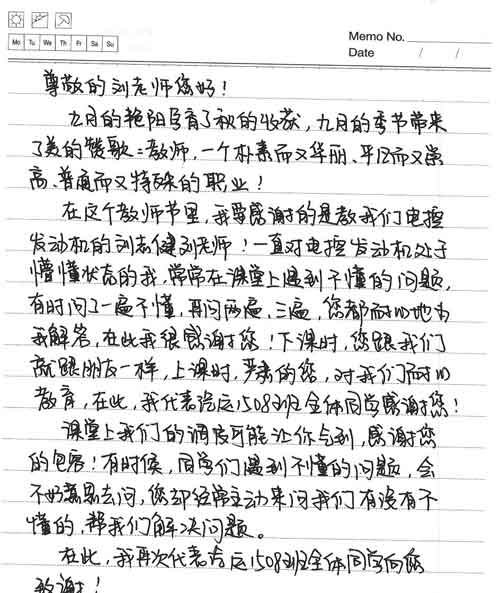 Mo Tu We Th Fr Sa Su
Memo No.
Date / /
尊敬的刘老师您好！
九月的艳阳孕育了秋的收获，九月的季节带来
了美的赞歌：教师，一个朴素而又华丽、平凡而又崇
高、普通而又特殊的职业！
在这个教师节里，我要感谢的是教我们电控
发动机的刘志健刘老师！一直对电控发动机处于
懵懂状态的我，常常在课堂上遇到不懂的问题，
有时问了一遍不懂，再问两遍、三遍，您都耐心地为
我解答，在此我很感谢您！下课时，您跟我们
就跟朋友一样，上课时，严肃的您，对我们耐心
教育，在此，我代表 1508班全体同学感谢您！
课堂上我们的调皮可能让你 ，感谢您
的包容！有时候，同学们遇到不懂的问题，会
不好意思去问，您却经常主动来问我们有没有不
懂的，帮我们解决问题。
在此，我再次代表 1508班全体同学向您
致谢！